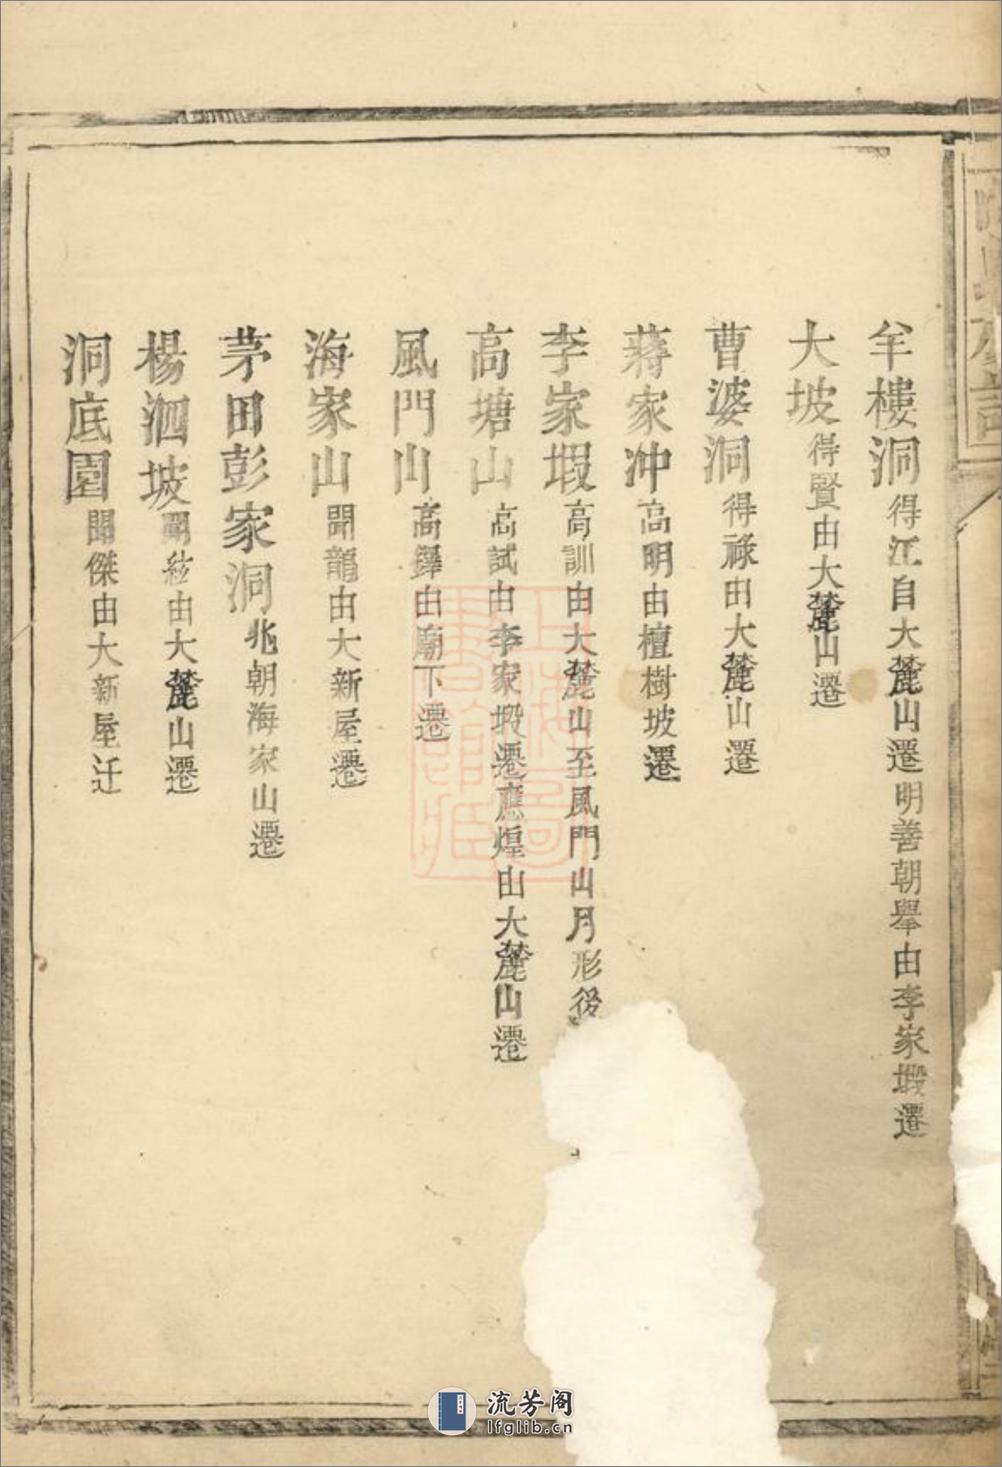 羊樓洞得江自大麓山遷明善朝舉由李家塅遷
大坡得賢由大麓山遷
曹婆洞得祿由大麓山遷
蔣家冲高明由檀樹坡遷
李家塅高訓由大麓山至風門山月形後
高塘山高試由李家塅遷應煌由大麓山遷
風門山高鐸由廟下遷
海家山開龍由大新屋遷
茅田彭家洞兆朝海家山遷
楊泗坡開紘由大麓山遷
洞底園開傑由大新屋迁
流芳阁
lfglib.cn